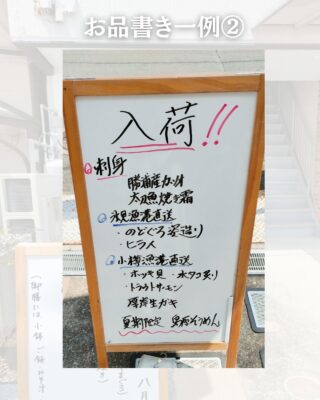 お品書き一例②
入荷!!
刺身
勝浦産カツオ
太刀魚焼き霜
氷見漁港直送
・のどぐろ姿造り
・ヒラメ
小樽漁港直送
・ホッキ貝 ・水タコ炙り
・トラウトサーモン
厚岸生ガキ
夏期限定
そうめん
八月